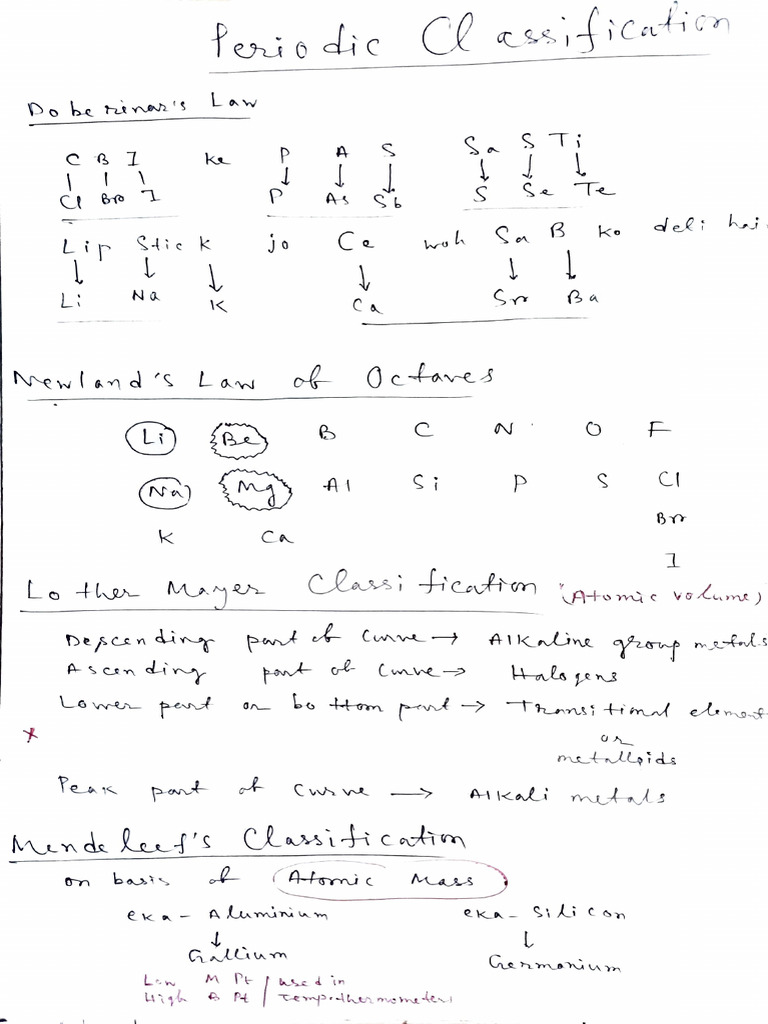 Periodic Classification
Doberinar's Law
C B I ke P A S Sa S Ti
Cl Br I P As Sb S Se Te
Lip Stick jo Ca woh Sa B ko deli hai
Li Na K Ca Sr Ba
Newland's Law of Octaves
Li Be B C N O F
Na Mg Al Si P S Cl
Br
K Ca
I
Lother Mayer Classification (Atomic volume)
Descending part of curve → Alkaline group metals
Ascending part of curve → Halogens
Lower part or bottom part → Transitional element
or
metalloids
Peak part of curve → Alkali metals
Mendeleef's Classification
on basis of Atomic Mass
eka-Aluminium eka-Silicon
Gallium Germonium
Low M Pt / used in
High B Pt / temp. thermometers